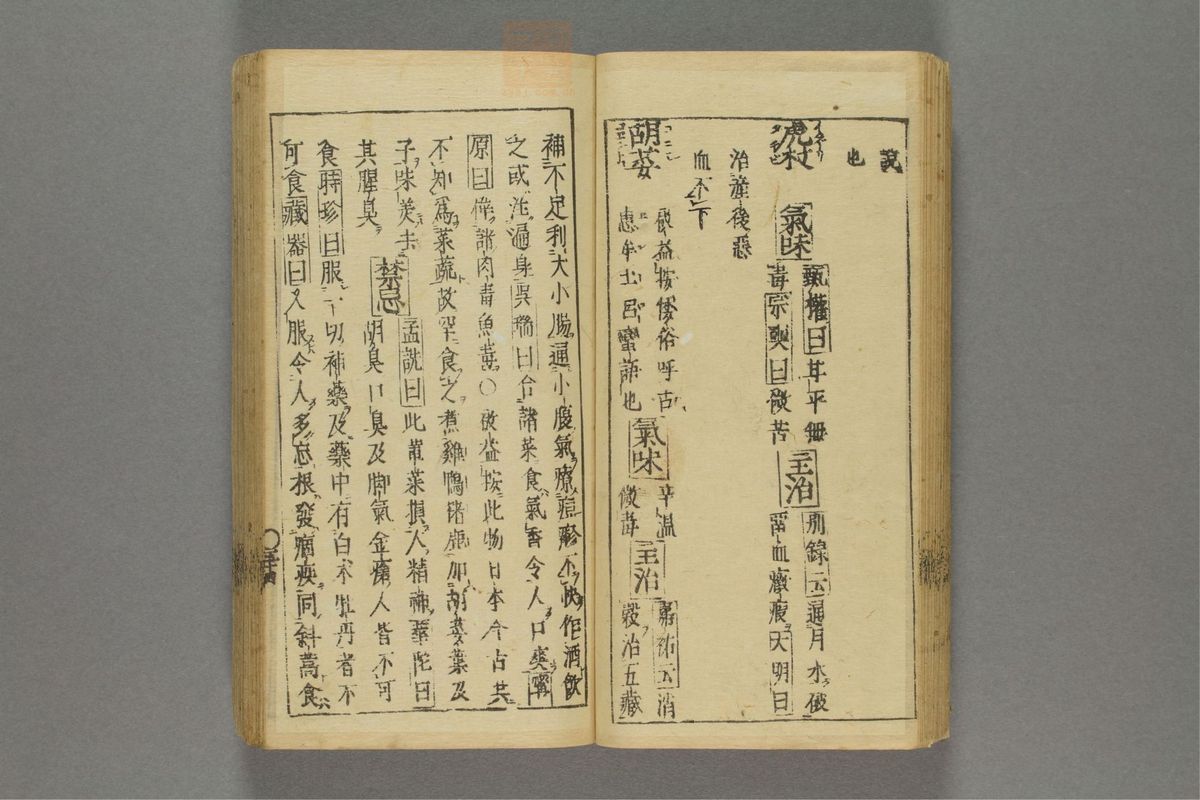 說
也
虎杖 氣味 甄權曰甘平無
毒宗奭曰微苦 主治 別錄云通月水破
畱血癥瘕大明曰
治産後惡
血不下
胡荽
啟益按倭俗呼古
惠牟土呂蠻語也 氣味 辛溫
微毒 主治 嘉祐云消
穀治五藏
補不足利大小腸通小腹氣療痘疹不快作酒飲
之或注遍身吳瑞曰合諸菜食氣香令人口爽寗
原曰偹諸肉毒魚毒〇啟益按此物日本今古共
不知爲菜蔬故罕食之煮雞鴨猪鹿加胡荽葉及
子味美去
其腥臭 禁忌 孟詵曰此葷菜損人精神華陀曰
胡臭口臭及脚氣金瘡人皆不可
食時珍曰服一切補藥及藥中有白朮牡丹者不
可食藏器曰久服令人多忘根發痼疾同斜蒿食
〇三十四